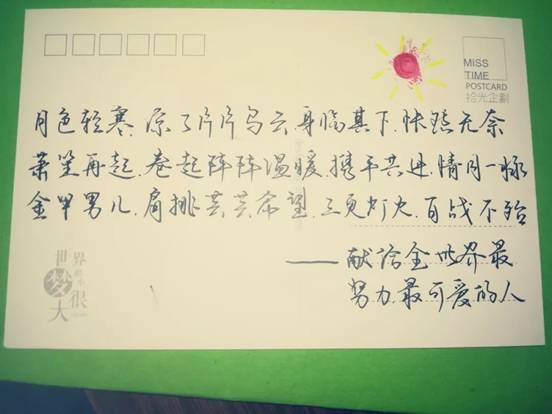 MISS
TIME
POSTCARD
拾光企劃
月色轻寒.凉了片片乌云.身临其下.怅无奈
萧笙再起.卷起阵阵温暖.携手共进.情同一
金甲男儿.肩挑芸芸希望.三更灯火.百战不殆
——献给全世界最
努力最可爱的人
世界
梦很
大